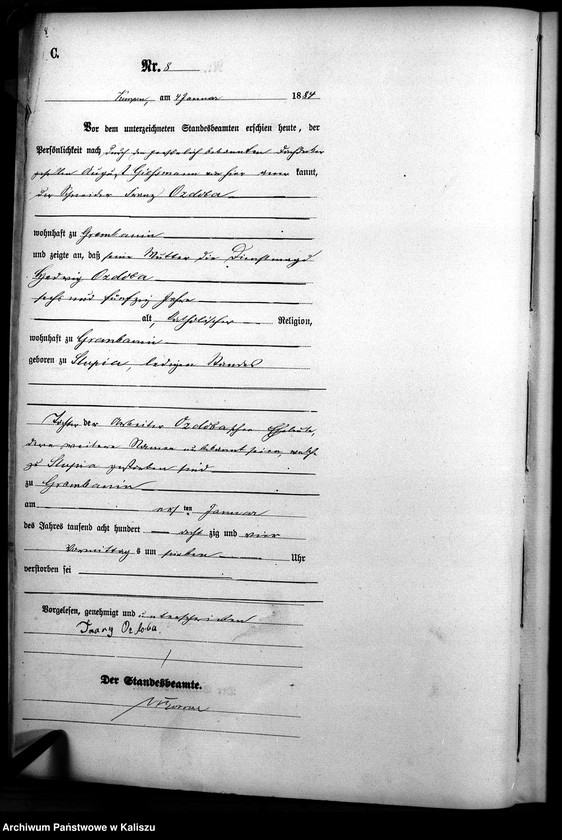 C.
Nr. 8
Kempen, am 4 Januar 1884
Vor dem unterzeichneten Standesbeamten erschien heute, der
Persönlichkeit nach durch den persönlich bekannten
August von hier kannt,
der Schneider Franz Ozdoba
wohnhaft zu Grembanin
und zeigte an, daß seine Mutter die Dienstmagd
Hedwig Ozdoba
sechs und fünfzig Jahre
alt, katholischer Religion,
wohnhaft zu Grembanin
geboren zu Slupia, ledigen Standes
Tochter der Arbeiter Ozdobaschen Eheleute,
deren weitere Namen unbekannt seien, welche
zu Slupia gestorben sind
zu Grembanin
am ten Januar
des Jahres tausend acht hundert acht zig und vier
Vormittag s um sieben Uhr
verstorben sei
Vorgelesen, genehmigt und unterschrieben
Franz Ozdoba.
Der Standesbeamte.
Archiwum Państwowe w Kaliszu